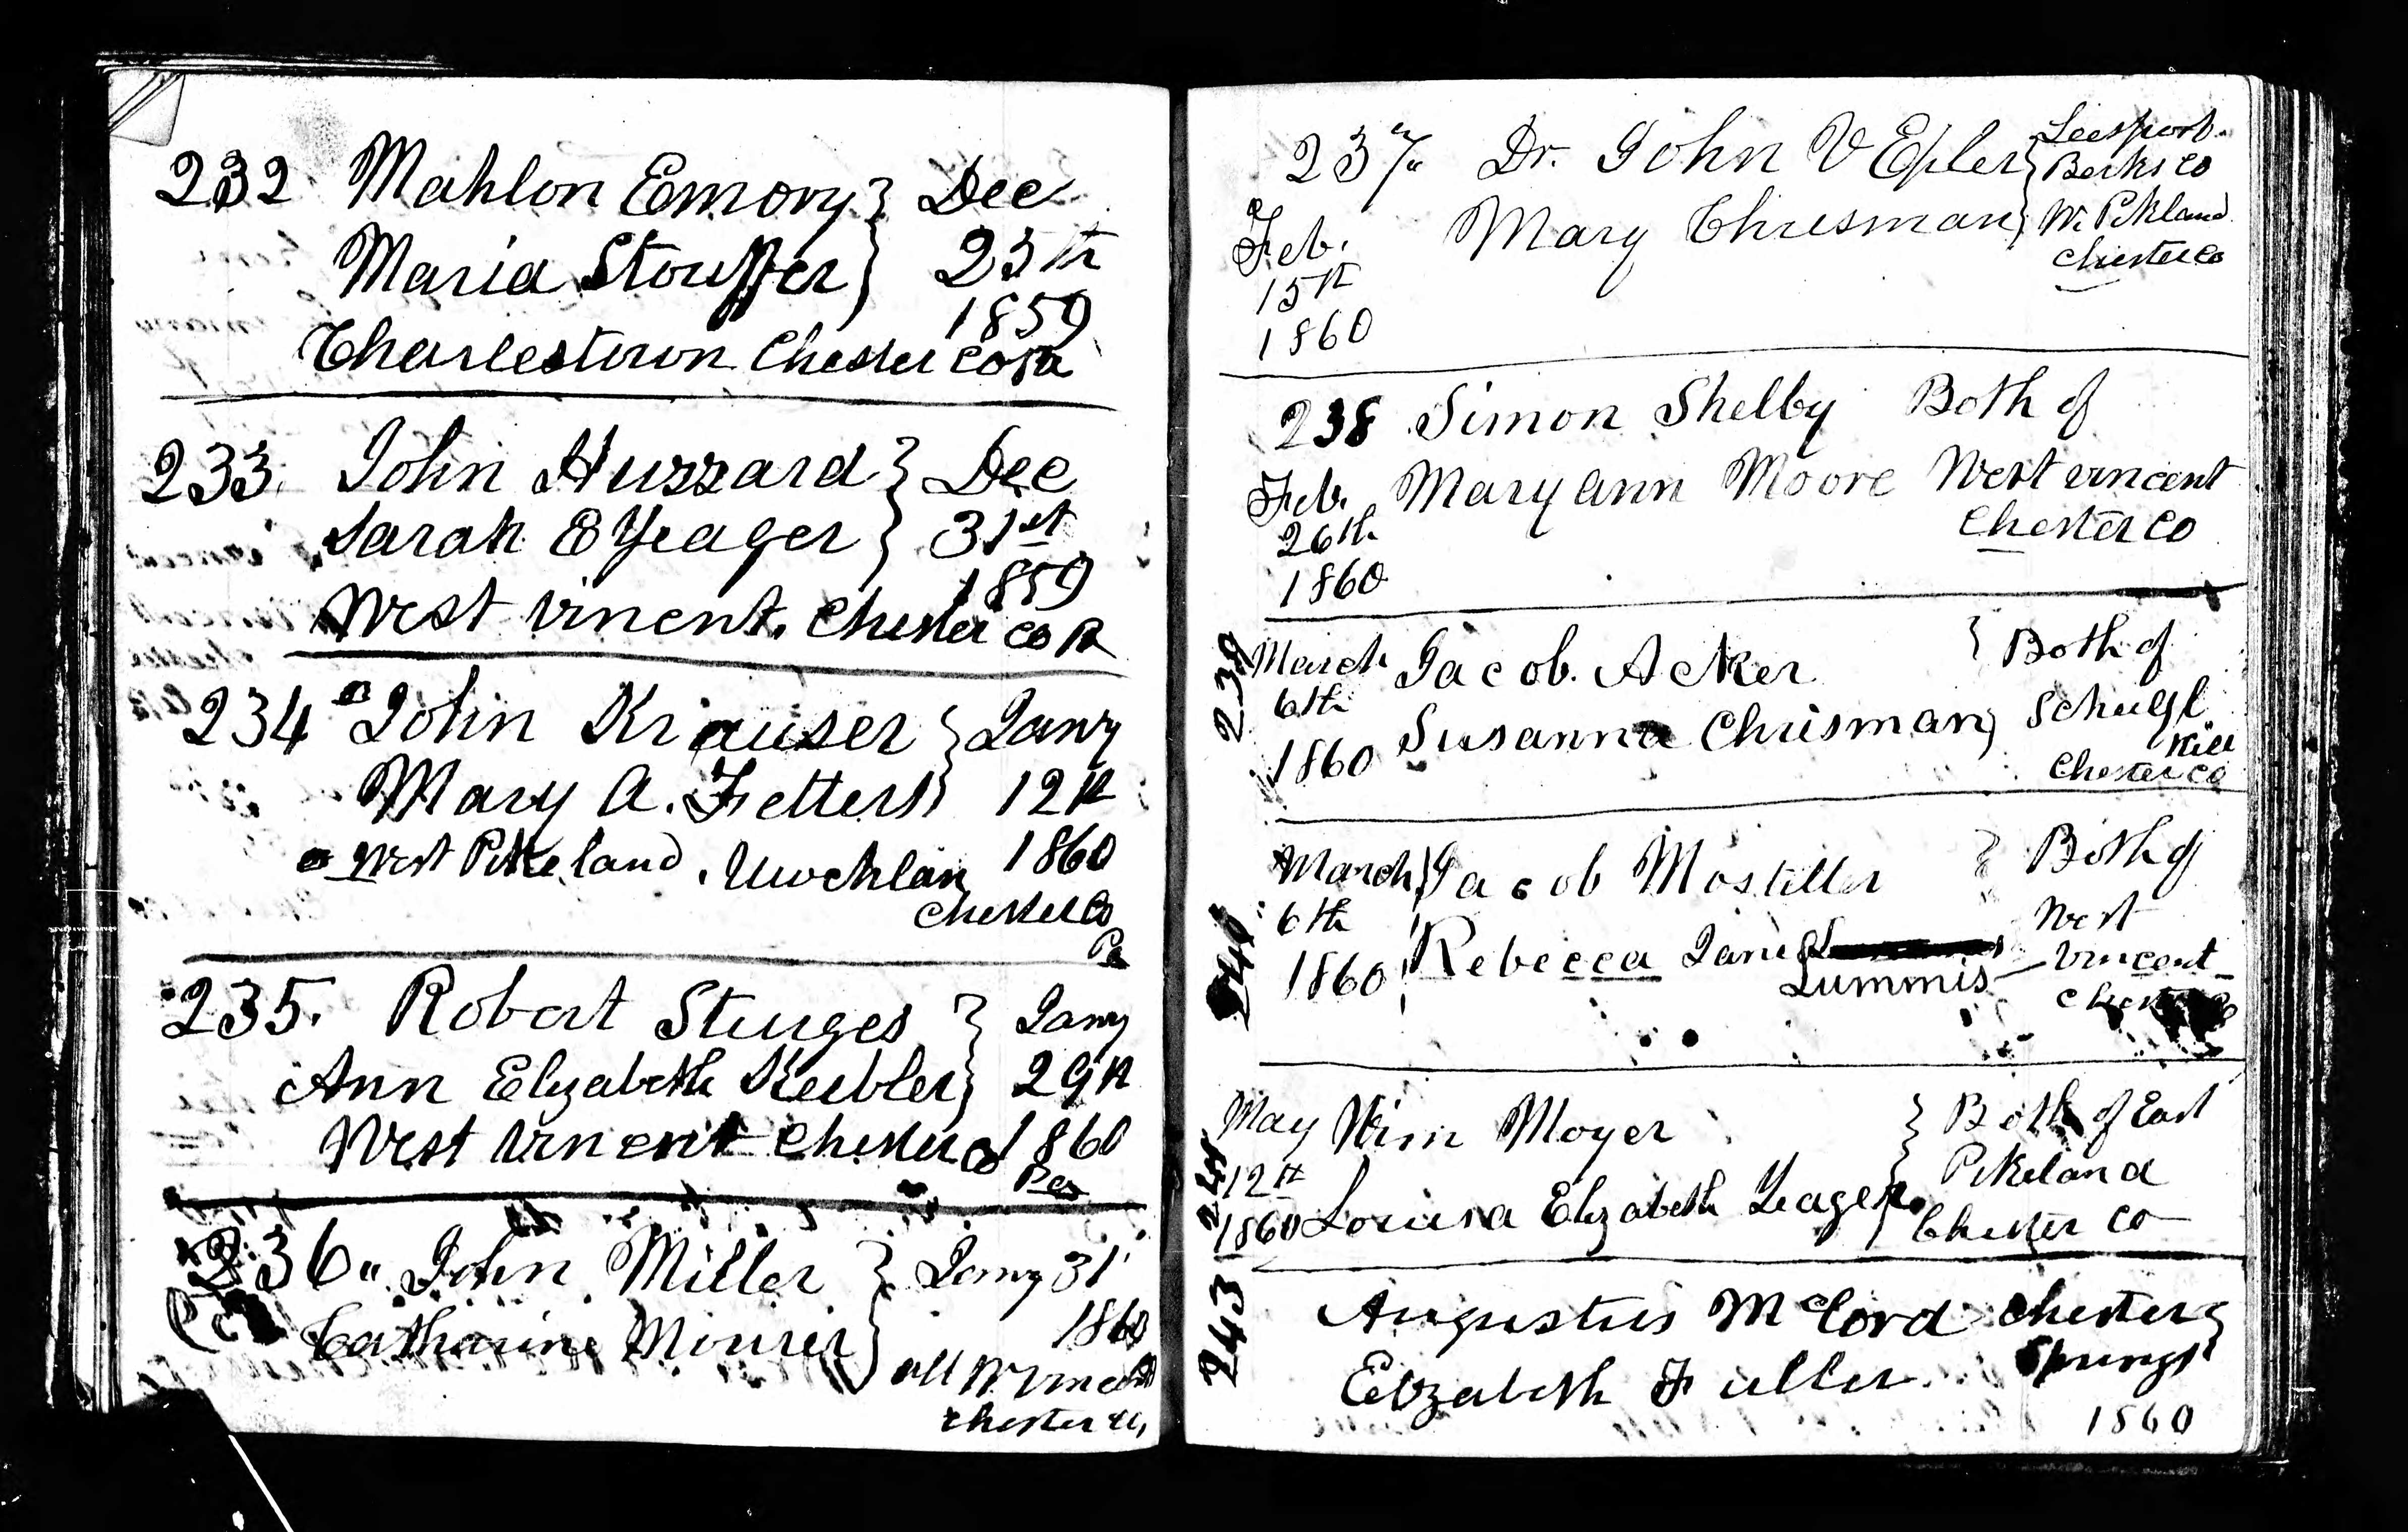 232 Mahlon Emory } Dec
Maria Stouffer } 25th
1859
Charlestown Chester Co Pa
233. John Huzzard } Dec
Sarah E Yeager } 31st
1859
West Vincent. Chester Co Pa
234 John Krauser } Jany
Mary A. Fetters } 12th
West Pikeland, Uwchlan 1860
Chester Co
Pa
235. Robert Sturges } Jany
Ann Elizabeth Keebler } 29th
West Vincent Chester Co 1860
Pa
236" John Miller } Jany 31
Catharine Mourer } 1860
all W Vincent
Chester Co,
237" Dr. John V Epler } Leesport.
Berks Co
Feb. Mary Chrisman } W. Pikland
15th Chester Co
1860
238 Simon Shelby Both of
Feb. Mary ann Moore West vincent
26th Chester Co
1860
239 March Jacob. Acker } Both of
6th
1860 Susanna Chrisman } Schuyl
kill
Chester Co
240 March Jacob Mosteller } Both of
6th West
1860 Rebecca Jane
Lummis Vincent
Chester Co
241 May Wm Moyer } Both of East
12th Pikeland
1860 Louisa Elizabeth Yeager } Chester Co
243 Augustus McCord Chester
Elizabeth Fuller Springs
1860